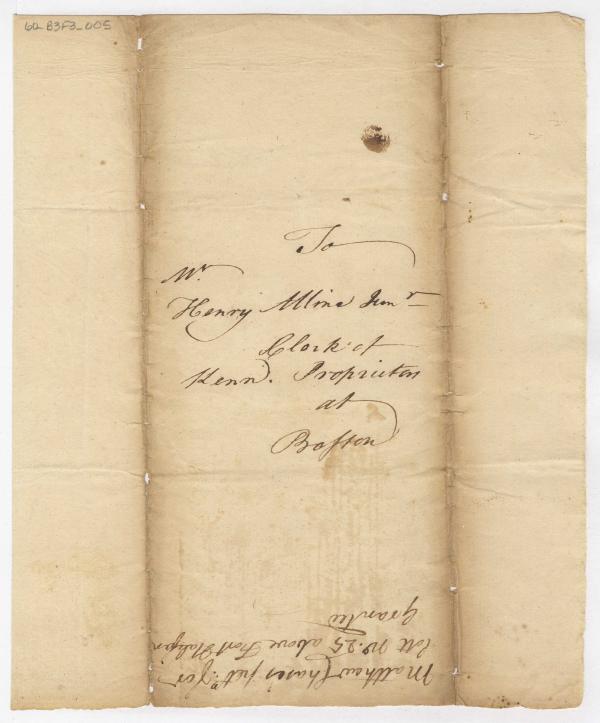 60_B3F3_005
To
Mr
Henry Alline Junr
Clerk of
Kenn. Proprietors
at
Boſton
Matthew Chase's petn. for
Lott No. 25 above Fort Halifax
Granted